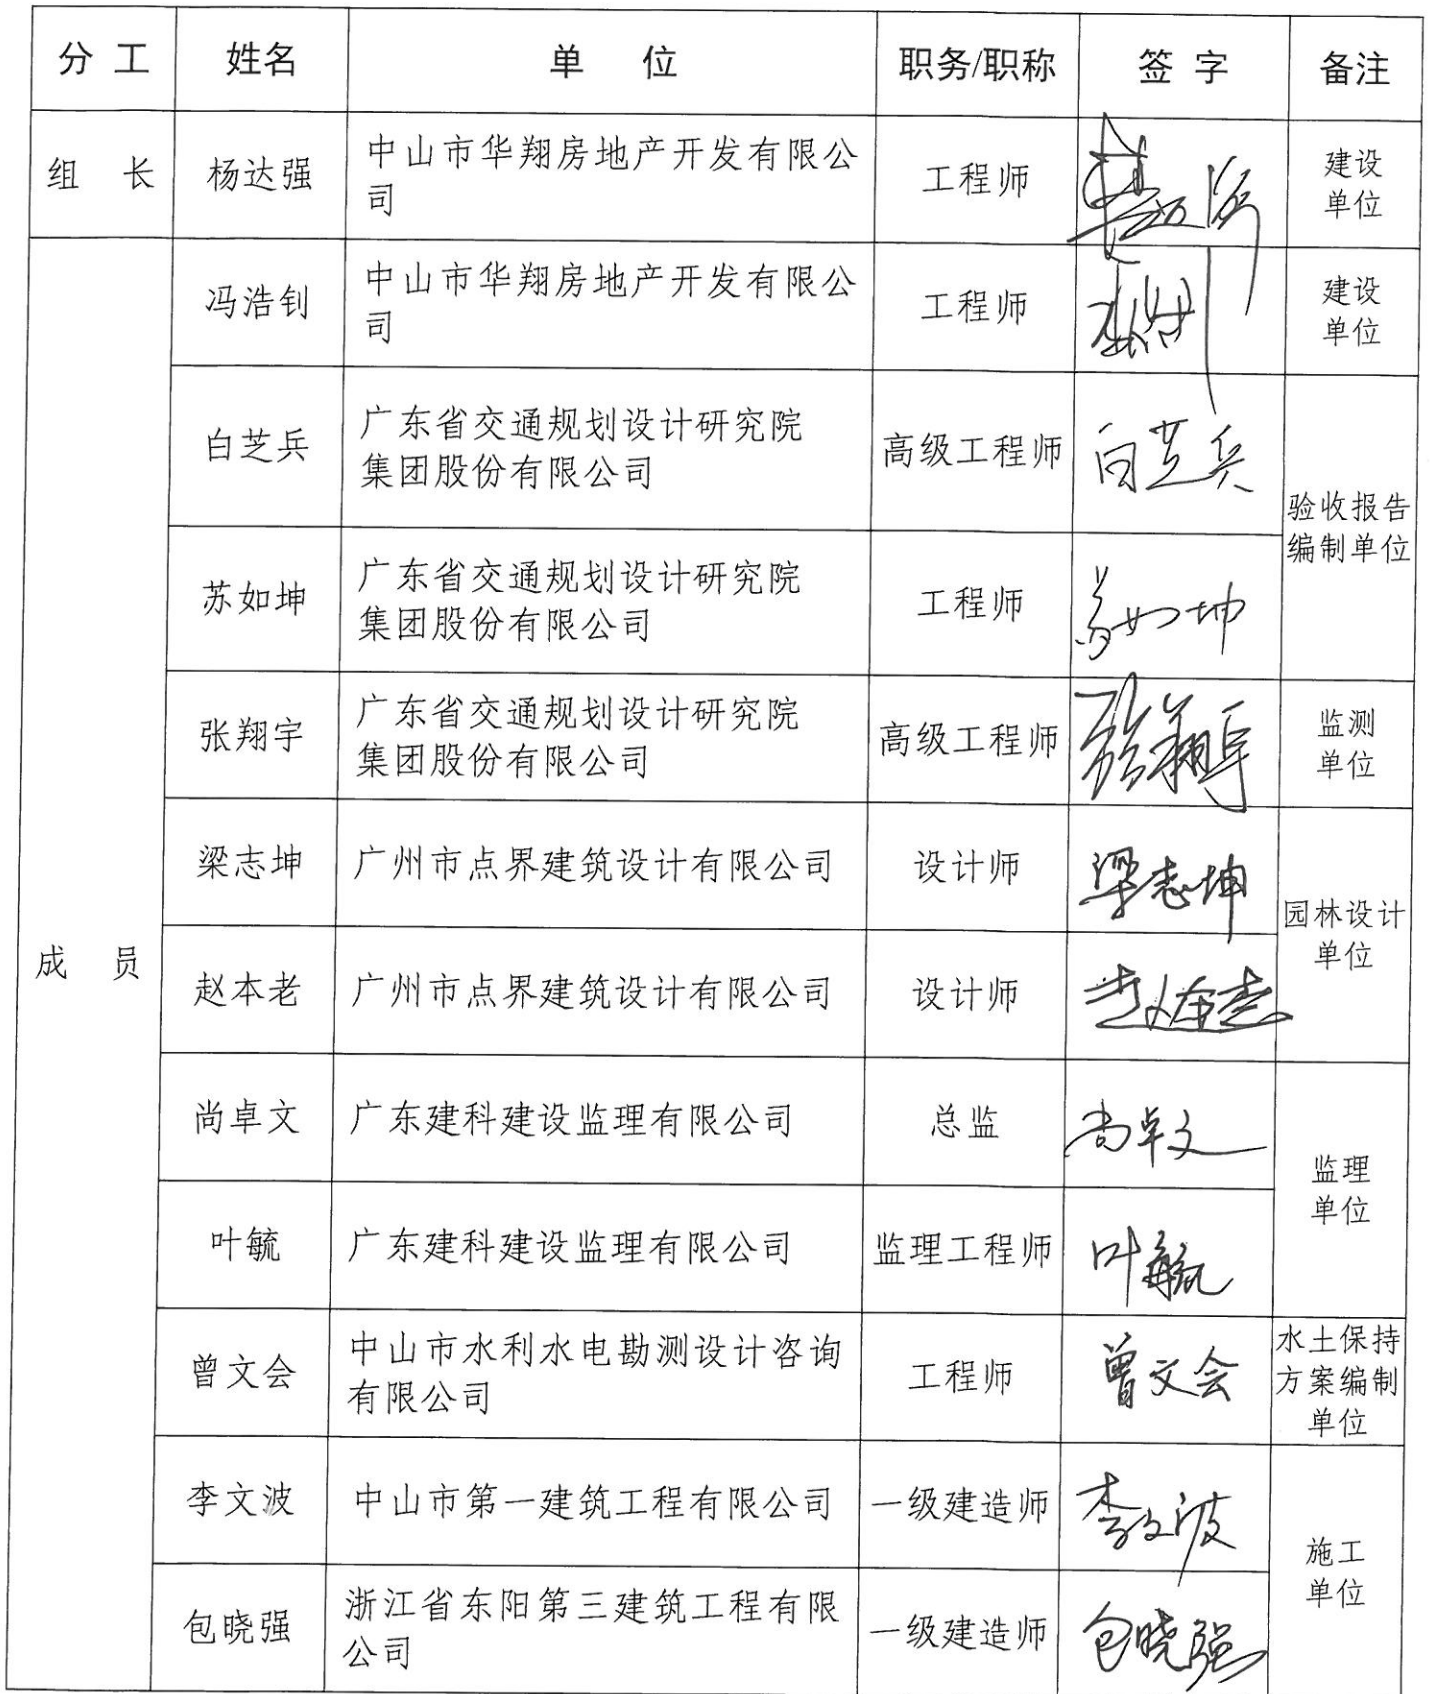 分 工 姓名 单 位 职务/职称 签 字 备注
组 长 杨达强 中山市华翔房地产开发有限公
司 工程师 建设
单位
成 员
冯浩钊 中山市华翔房地产开发有限公
司 工程师 建设
单位
白芝兵 广东省交通规划设计研究院
集团股份有限公司 高级工程师 白芝兵 验收报告
编制单位
苏如坤 广东省交通规划设计研究院
集团股份有限公司 工程师 苏如坤
张翔宇 广东省交通规划设计研究院
集团股份有限公司 高级工程师 张翔宇 监测
单位
梁志坤 广州市点界建筑设计有限公司 设计师 梁志坤 园林设计
单位
赵本老 广州市点界建筑设计有限公司 设计师
尚卓文 广东建科建设监理有限公司 总监 尚卓文 监理
单位
叶毓 广东建科建设监理有限公司 监理工程师 叶毓
曾文会 中山市水利水电勘测设计咨询
有限公司 工程师 曾文会 水土保持
方案编制
单位
李文波 中山市第一建筑工程有限公司 一级建造师 李文波 施工
单位
包晓强 浙江省东阳第三建筑工程有限
公司 一级建造师 包晓强